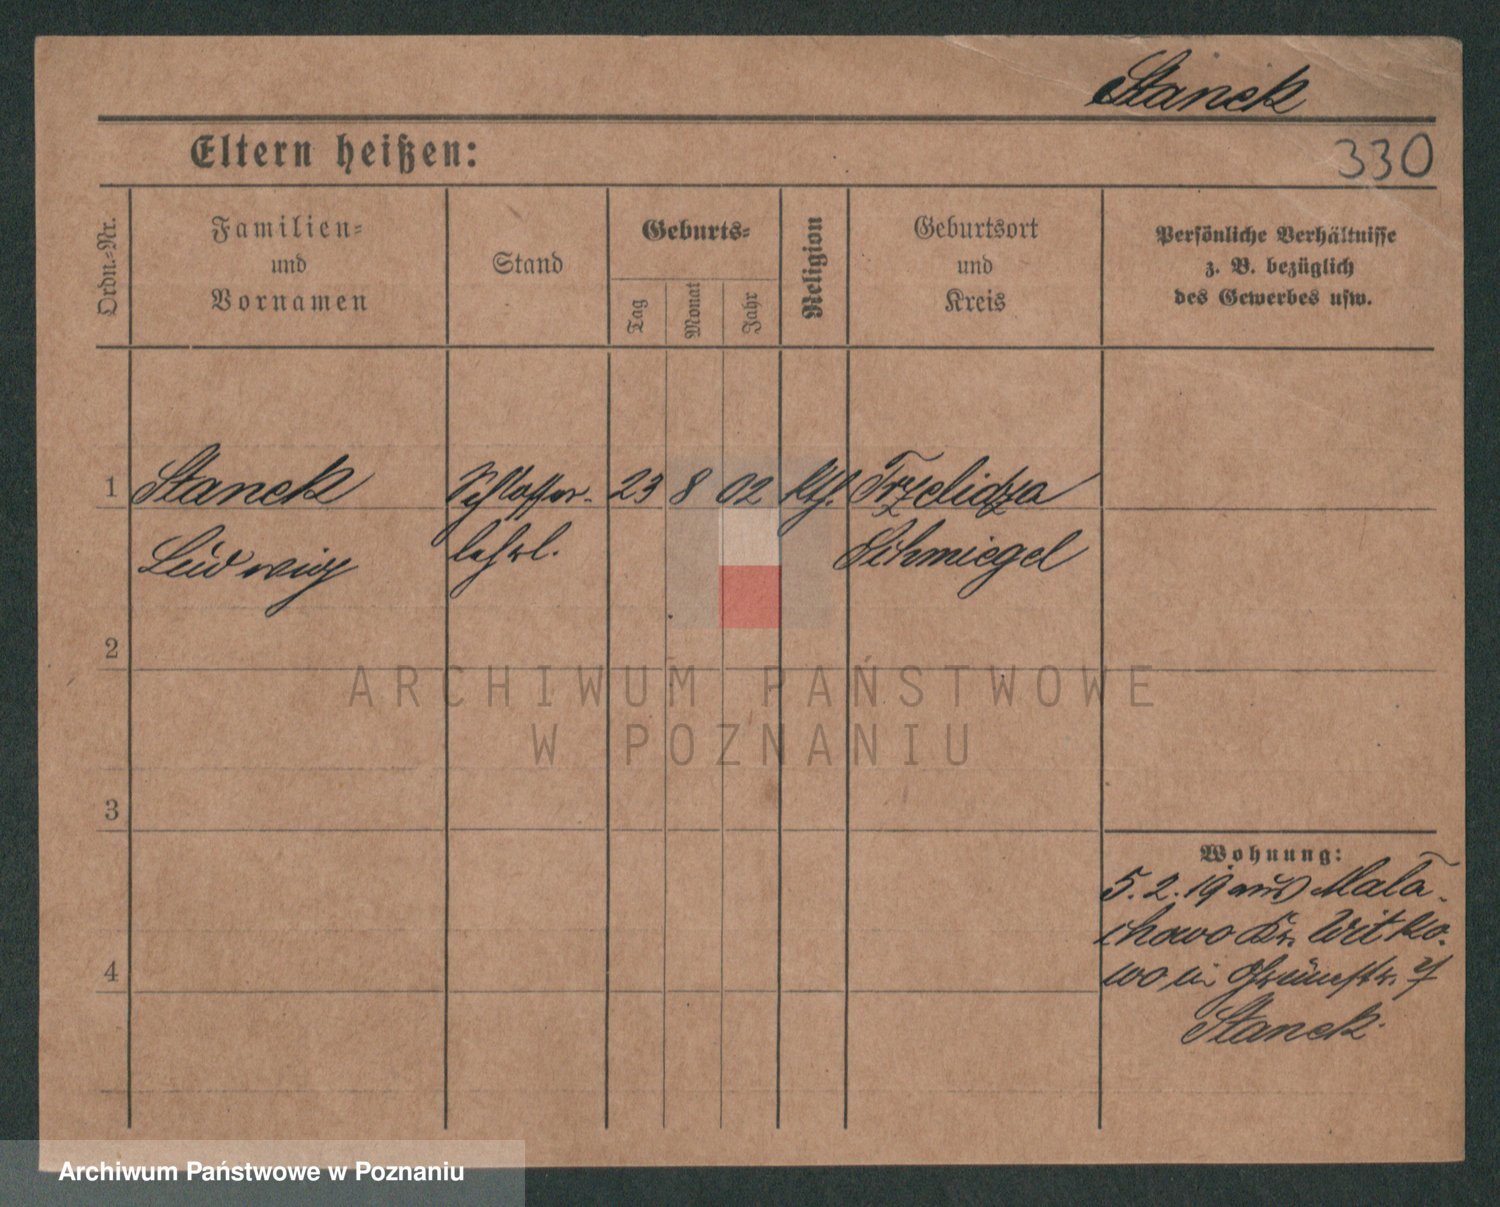 Stanek
Eltern heißen:
330
Ordn.-Nr.
Familien-
und
Vornamen
Stand
Geburts-
Tag
Monat
Jahr
Religion
Geburtsort
und
Kreis
Persönliche Verhältnisse
z. B. bezüglich
des Gewerbes usw.
1 Stanek Schlosser- 23 8 02 kth. Trzelidza
Ludwig lehrl. Schmiegel
2
ARCHIWUM PAŃSTWOWE
W POZNANIU
3
Wohnung:
5. 2. 19 aus Mala-
chowo Kr. Witko-
4
wo in Grünestr. 7
Stanek.
Archiwum Państwowe w Poznaniu